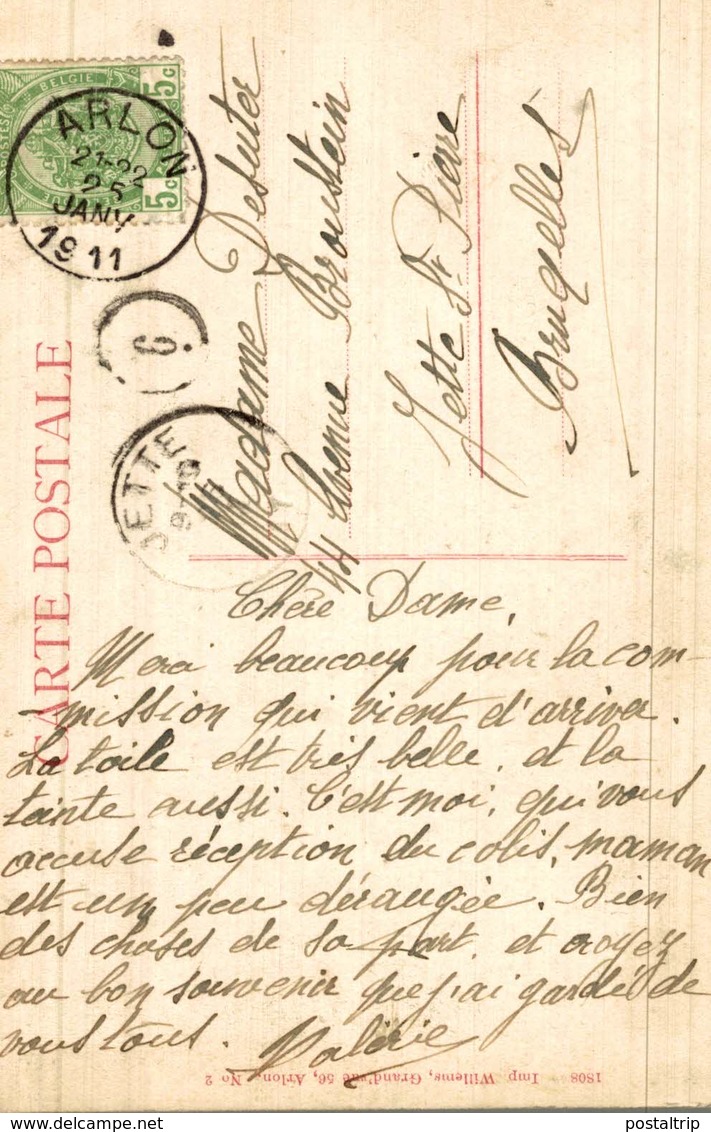 BELGIE
5c 5c
ARLON
21-22
25
JANV
1911
6
JETTE
CARTE POSTALE
Madame Desuter
44 Avenue Broustein
Jette St Pierre
Bruxelles
Chère Dame,
Merci beaucoup pour la com-
mission qui vient d'arriver.
La toile est très belle, et la
teinte aussi. C'est moi, qui vous
accuse réception du colis, maman
est un peu dérangée. Bien
des choses de sa part, et croyez
au bon souvenir que j'ai gardé de
vous tous. Valérie
1808 Imp Willems, Grand'rue 56, Arlon. No 2
postaltrip
postaltrip.com